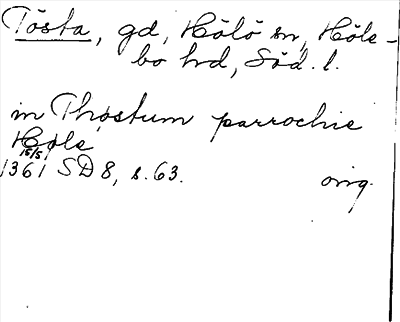 Tösta, gd, Hölö sn, Höle-
bo hd, Söd. l.
in Thøstum parrochie
Høle
15/5
1361 SD 8, s. 63.
orig.